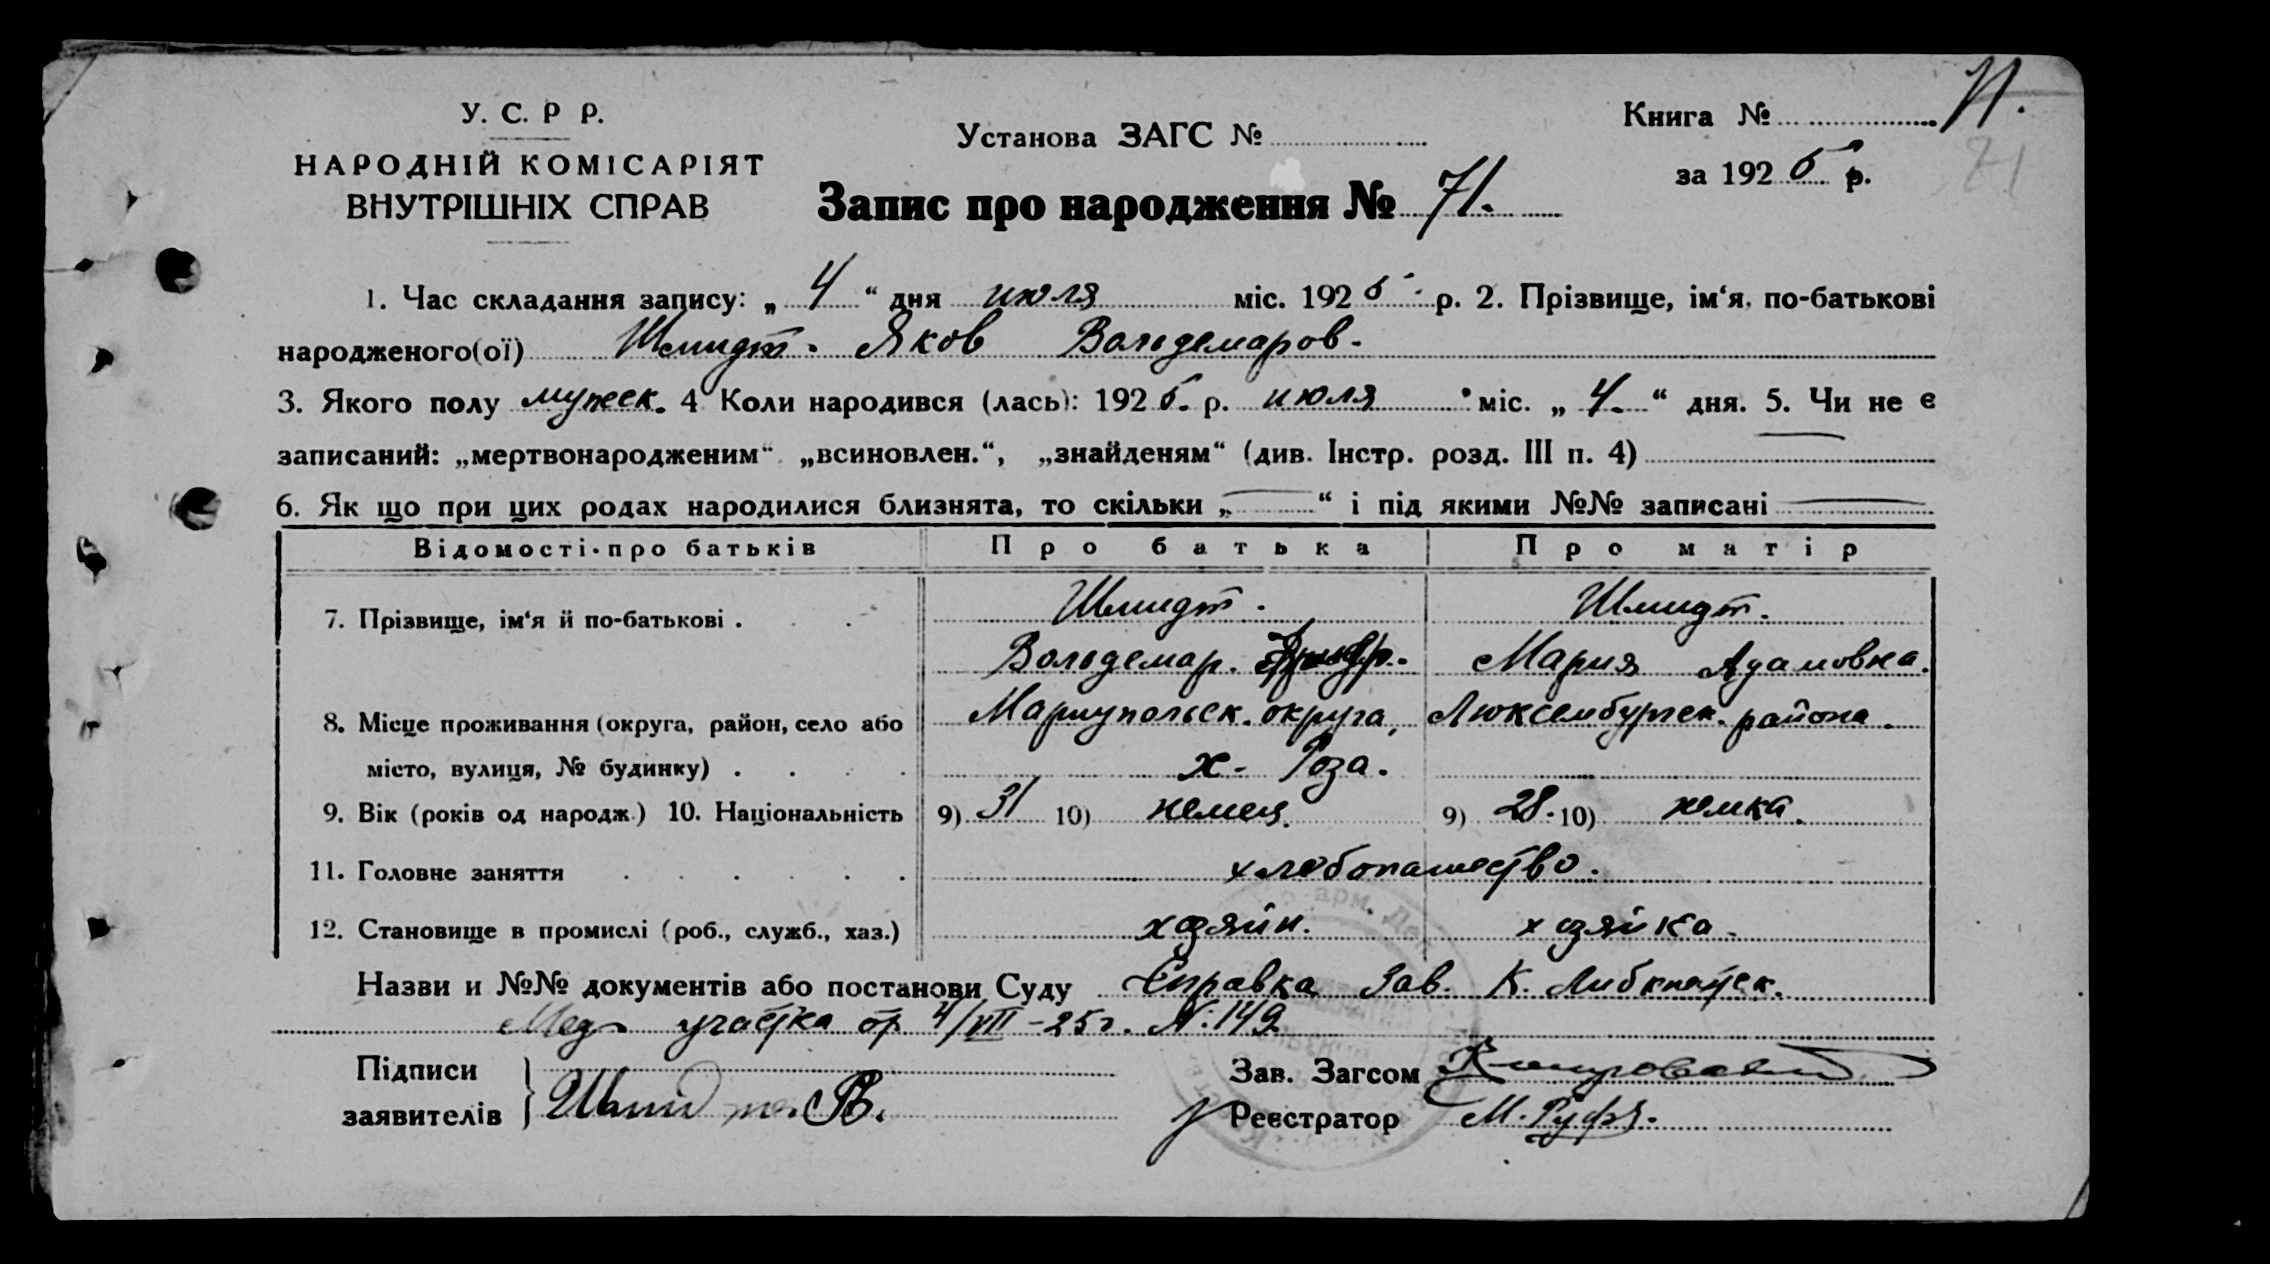 У. С. Р Р.
НАРОДНІЙ КОМІСАРІЯТ
ВНУТРІШНІХ СПРАВ
Установа ЗАГС №
Книга № 71.
71
за 1925 р.
Запис про народження № 71.
1. Час складання запису: „ 4 “ дня июля міс. 1925 р. 2. Прізвище, ім‘я, по-батькові
народженого(ої) Шмидт. Яков Вольдемаров.
3. Якого полу мужеск. 4 Коли народився (лась): 1925. р. июля міс. „ 4. “ дня. 5. Чи не є
записаний: „мертвонародженим“ „всиновлен.“, „знайденям“ (див. Інстр. розд. III п. 4) —
6. Як що при цих родах народилися близнята, то скільки „ — “ і під якими №№ записані —
Відомості про батьків Про батька Про матір
7. Прізвище, ім‘я й по-батькові . Шмидт. Шмидт.
Вольдемар. Мария Адамовна.
8. Місце проживання (округа, район, село або Мариупольск. округа, Люксембургск. района.
місто, вулиця, № будинку) . . . . х. Роза.
9. Вік (років од народж.) 10. Національність 9) 31 10) немец. 9) 28. 10) немка.
11. Головне заняття . . . . . . хлебопашество.
12. Становище в промислі (роб., служб., хаз.) хозяйн. хозяйка.
Назви и №№ документів або постанови Суду Справка Зав. К. Либкнехтск.
Мед. участка от 4/VII-25г. №149
Підписи
заявителів Шмидт. В.
Зав. Загсом
Реєстратор М.